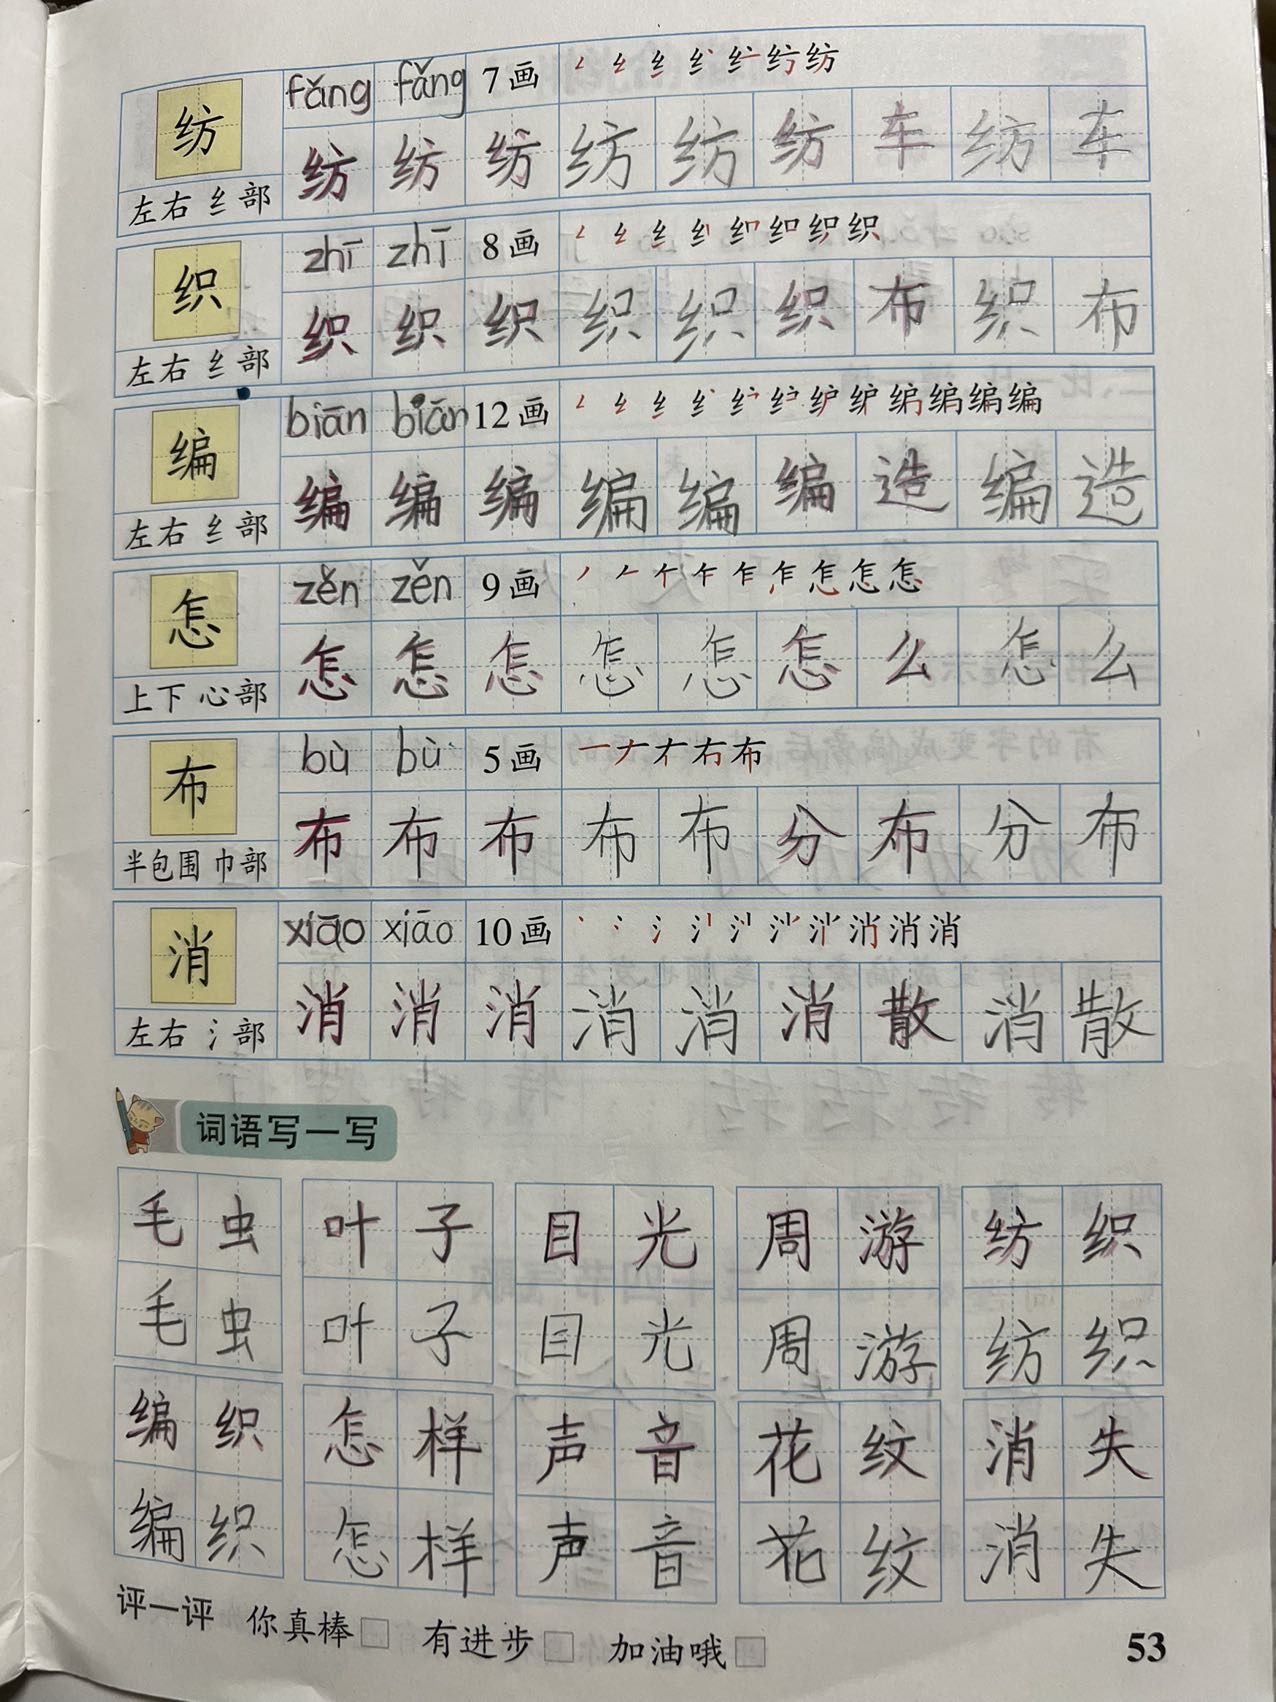 纺 fǎng fǎng 7画 纺纺
左右 纟部 纺 纺 纺 纺 纺 纺 车 纺 车
织 zhī zhī 8画 织织
左右 纟部 织 织 织 织 织 织 布 织 布
编 biān biān 12画 编编编编
左右 纟部 编 编 编 编 编 编 造 编 造
怎 zěn zěn 9画 怎怎怎
上下 心部 怎 怎 怎 怎 怎 怎 么 怎 么
布 bù bù 5画 一ナオ右布
半包围 巾部 布 布 布 布 布 分 布 分 布
消 xiāo xiāo 10画 消消消
左右 氵部 消 消 消 消 消 消 散 消 散
词语写一写
毛虫 叶子 目光 周游 纺织
毛虫 叶子 目光 周游 纺织
编织 怎样 声音 花纹 消失
编织 怎样 声音 花纹 消失
评一评 你真棒□ 有进步□ 加油哦□
53